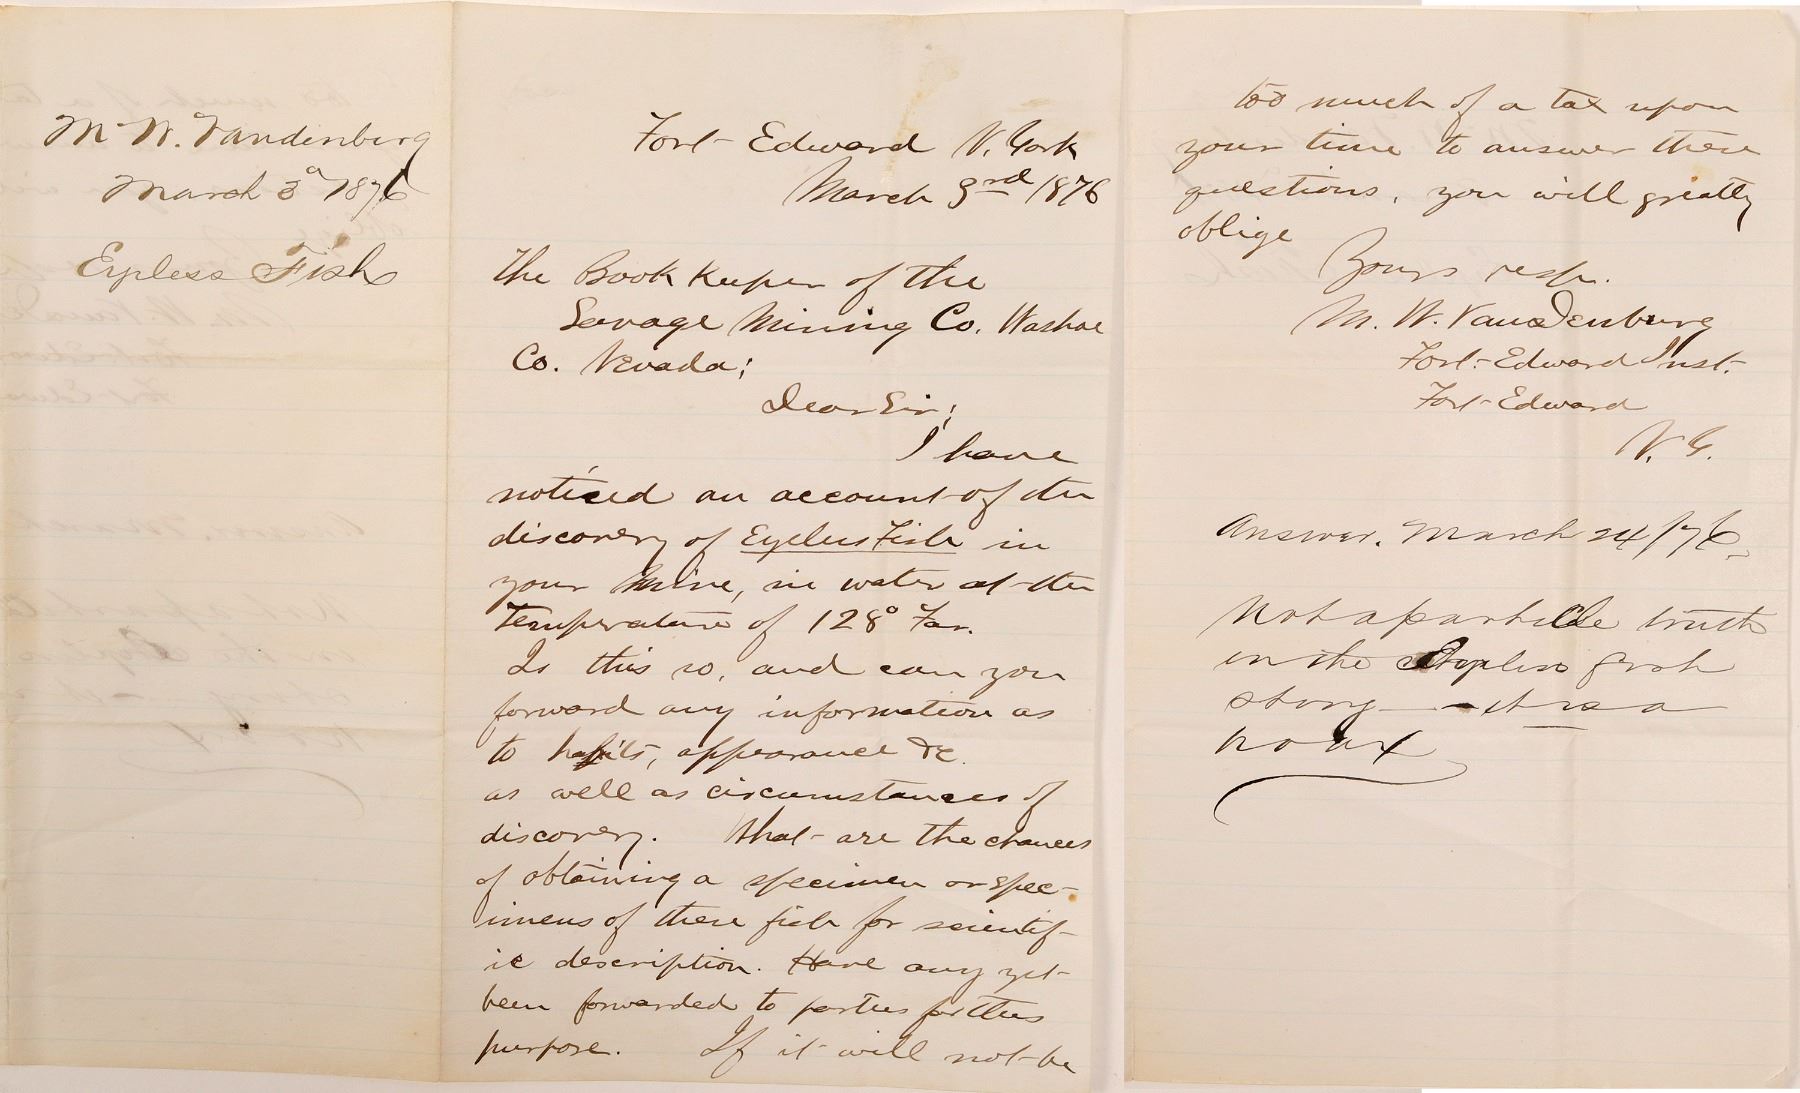 M. W. Vandenberg
March 3d 1876
Eyeless Fish
Fort Edward N. York
March 3rd 1876
The Book Keeper of the
Savage Mining Co. Washoe
Co. Nevada;
Dear Sir;
I have
noticed an account of the
discovery of Eyeless Fish in
your Mine, in water at the
Temperature of 128° Far.
Is this so, and can you
forward any information as
to habits, appearance &c.
as well as circumstances of
discovery. What are the chances
of obtaining a specimen or spec-
imens of these fish for scientif-
ic description. Have any yet
been forwarded to parties for this
purpose. If it will not be
too much of a tax upon
your time to answer these
questions, you will greatly
oblige
Yours resp.
M. W. VanDenburg
Fort Edward Inst.
Fort Edward
N. Y.
Answer. March 24/76
Not a particle truth
in the Eyeless fish
story - it is a
hoax